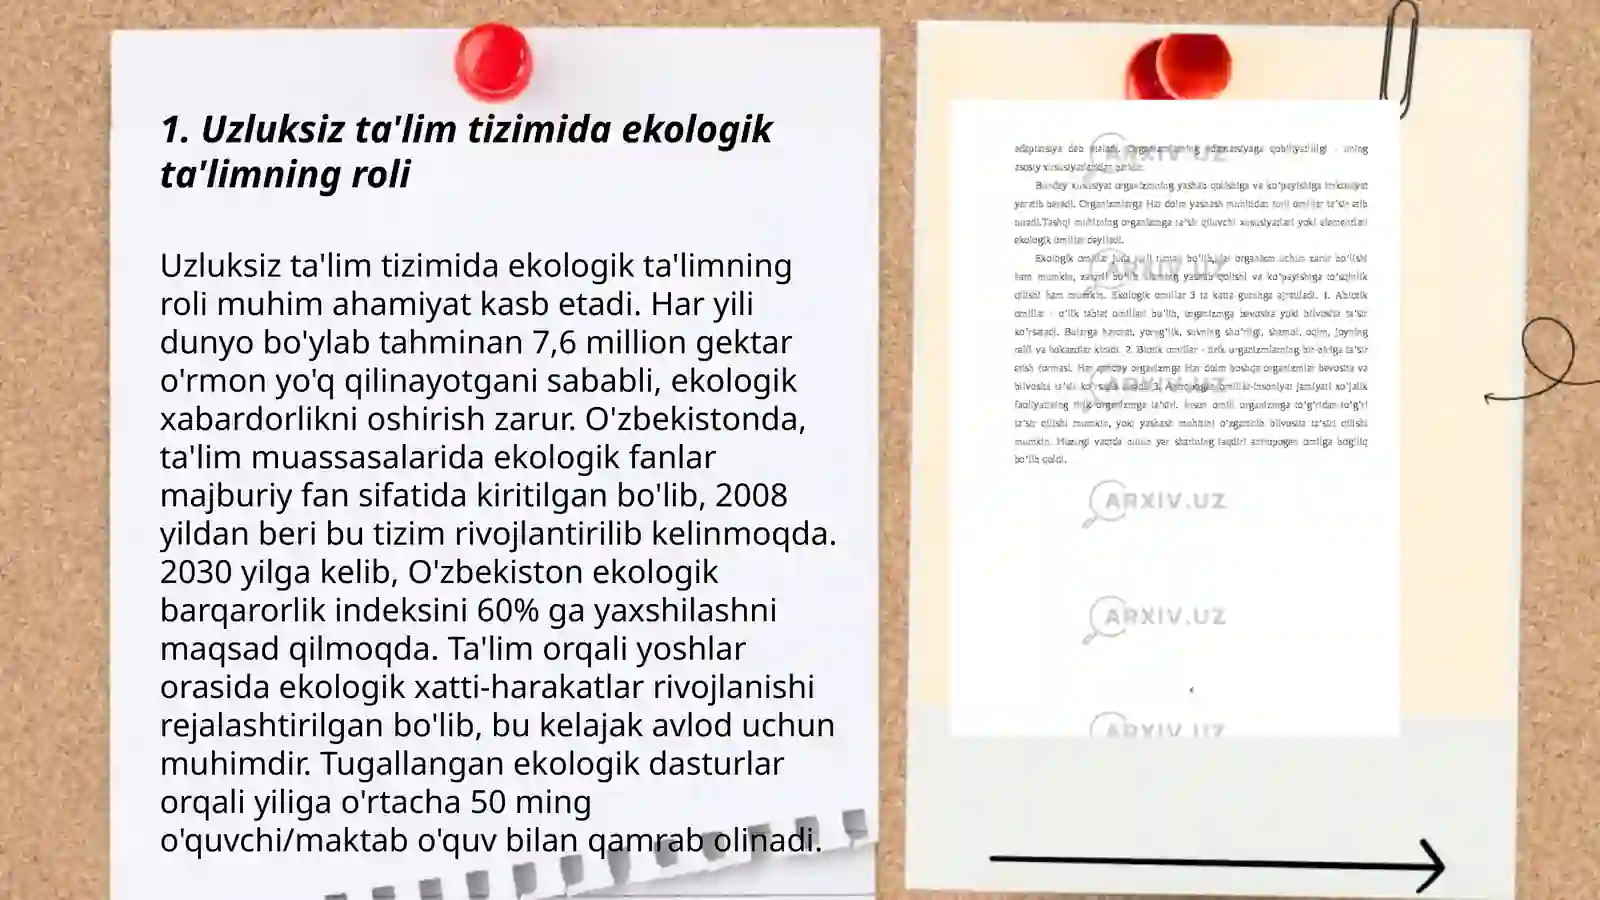 1. Uzluksiz ta'lim tizimida ekologik
ta'limning roli
Uzluksiz ta'lim tizimida ekologik ta'limning
roli muhim ahamiyat kasb etadi. Har yili
dunyo bo'ylab tahminan 7,6 million gektar
o'rmon yo'q qilinayotgani sababli, ekologik
xabardorlikni oshirish zarur. O'zbekistonda,
ta'lim muassasalarida ekologik fanlar
majburiy fan sifatida kiritilgan bo'lib, 2008
yildan beri bu tizim rivojlantirilib kelinmoqda.
2030 yilga kelib, O'zbekiston ekologik
barqarorlik indeksini 60% ga yaxshilashni
maqsad qilmoqda. Ta'lim orqali yoshlar
orasida ekologik xatti-harakatlar rivojlanishi
rejalashtirilgan bo'lib, bu kelajak avlod uchun
muhimdir. Tugallangan ekologik dasturlar
orqali yiliga o'rtacha 50 ming
o'quvchi/maktab o'quv bilan qamrab olinadi.
adaptatsiya deb ataladi. Organizmlarning adaptatsiyaga qobiliyatliligi - uning
asosiy xususiyatlaridan biridir.
Bunday xususiyat organizmning yashab qolishiga va ko'payishiga imkoniyat
yaratib beradi. Organizmlarga Har doim yashash muhitidan turli omillar ta'sir etib
turadi.Tashqi muhitning organizmga ta'sir qiluvchi xususiyatlari yoki elementlari
ekologik omillar deyiladi.
Ekologik omillar juda turli tuman bo'lib,ular organizm uchun zarur bo'lishi
ham mumkin, zararli bo'lib ularning yashab qolishi va ko'payishiga to'sqinlik
qilishi ham mumkin. Ekologik omillar 3 ta katta guruhga ajratiladi. 1. Abiotik
omillar - o'lik tabiat omillari bo'lib, organizmga bevosita yoki bilvosita ta'sir
ko'rsatadi. Bularga harorat, yorug'lik, suvning sho'rligi, shamol, oqim, joyning
relfi va hokazolar kiradi. 2. Biotik omillar - tirik organizmlarning bir-biriga ta'sir
etish formasi. Har qanday organizmga Har doim boshqa organizmlar bevosita va
bilvosita ta'sir ko'rsatib turadi. 3. Antropogen omillar-insoniyat jamiyati xo'jalik
faoliyatining tirik organizmga ta'siri. Inson omili organizmga to'g'ridan-to'g'ri
ta'sir qilishi mumkin, yoki yashash muhitini o'zgartirib bilvosita ta'siri qilishi
mumkin. Hozirgi vaqtda butun yer sharining taqdiri antropogen omilga bog'liq
bo'lib qoldi.
ARXIV.UZ
ARXIV.UZ
ARXIV.UZ
ARXIV.UZ
ARXIV.UZ
ARXIV.UZ